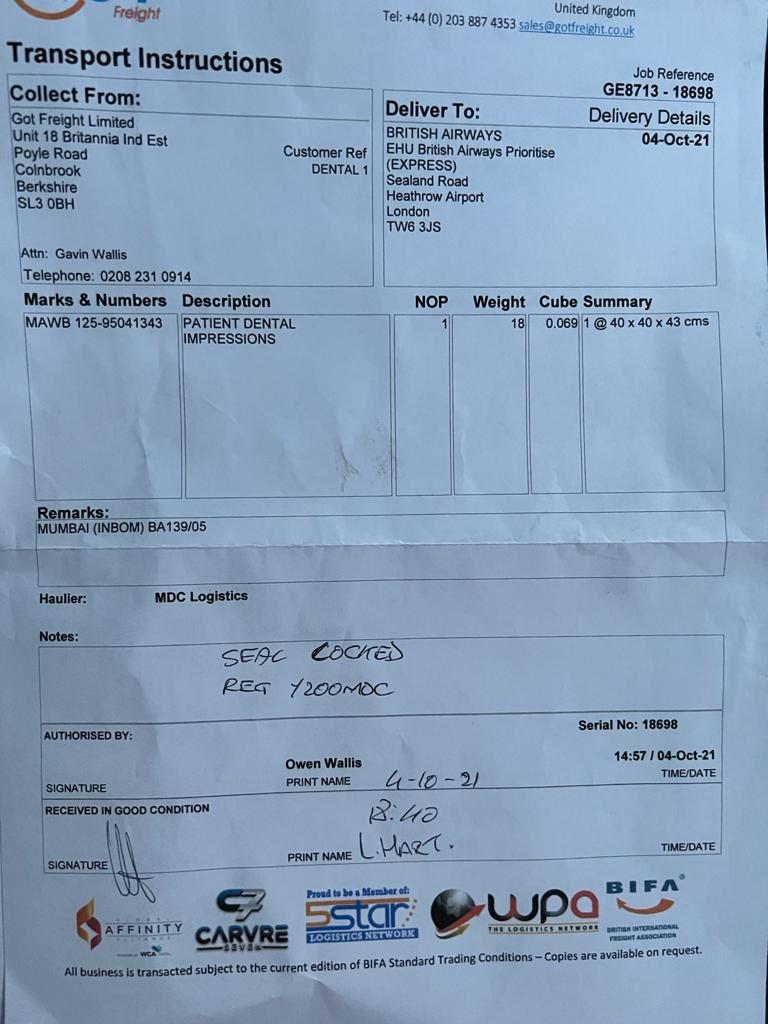 Freight
United Kingdom
Tel: +44 (0) 203 887 4353 sales@gotfreight.co.uk
Transport Instructions
Job Reference
GE8713 - 18698
Collect From:
Got Freight Limited
Unit 18 Britannia Ind Est
Poyle Road
Colnbrook
Berkshire
SL3 0BH
Customer Ref
DENTAL 1
Attn: Gavin Wallis
Telephone: 0208 231 0914
Deliver To:
Delivery Details
04-Oct-21
BRITISH AIRWAYS
EHU British Airways Prioritise
(EXPRESS)
Sealand Road
Heathrow Airport
London
TW6 3JS
Marks & Numbers Description NOP Weight Cube Summary
MAWB 125-95041343 PATIENT DENTAL 1 18 0.069 1 @ 40 x 40 x 43 cms
IMPRESSIONS
Remarks:
MUMBAI (INBOM) BA139/05
Haulier: MDC Logistics
Notes:
SEAL LOCKED
REG Y200MDC
Serial No: 18698
AUTHORISED BY:
Owen Wallis 14:57 / 04-Oct-21
SIGNATURE PRINT NAME 4-10-21 TIME/DATE
RECEIVED IN GOOD CONDITION
SIGNATURE PRINT NAME L.HART. TIME/DATE
AFFINITY
WCA
CARVRE
SEVEN
Proud to be a Member of:
5star
LOGISTICS NETWORK
wpa
THE LOGISTICS NETWORK
BIFA
BRITISH INTERNATIONAL
FREIGHT ASSOCIATION
All business is transacted subject to the current edition of BIFA Standard Trading Conditions – Copies are available on request.